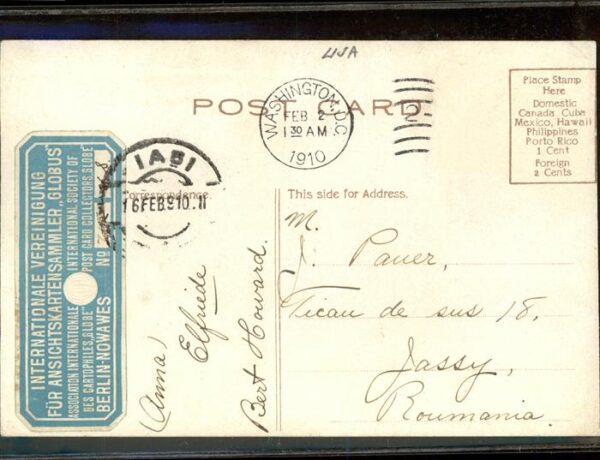 USA
POST CARD
WASHINGTON, D.C.
FEB 2
1 30 AM
1910
2
Place Stamp
Here
Domestic
Canada Cuba
Mexico, Hawaii
Philippines
Porto Rico
1 Cent
Foreign
2 Cents
INTERNATIONALE VEREINIGUNG
FÜR ANSICHTSKARTENSAMMLER „GLOBUS"
ASSOCIATION INTERNATIONALE
DES CARTOPHILES „GLOBE"
INTERNATIONAL SOCIETY OF
POST CARD COLLECTORS „GLOBE"
BERLIN-NOWAWES
No
IASI
16 FEB 910. 11
Correspondence.
(Anna)
Elfriede
Bert Howard.
This side for Address.
M.
J. Pauer,
Ticau de sus 18,
Jassy,
Roumania.